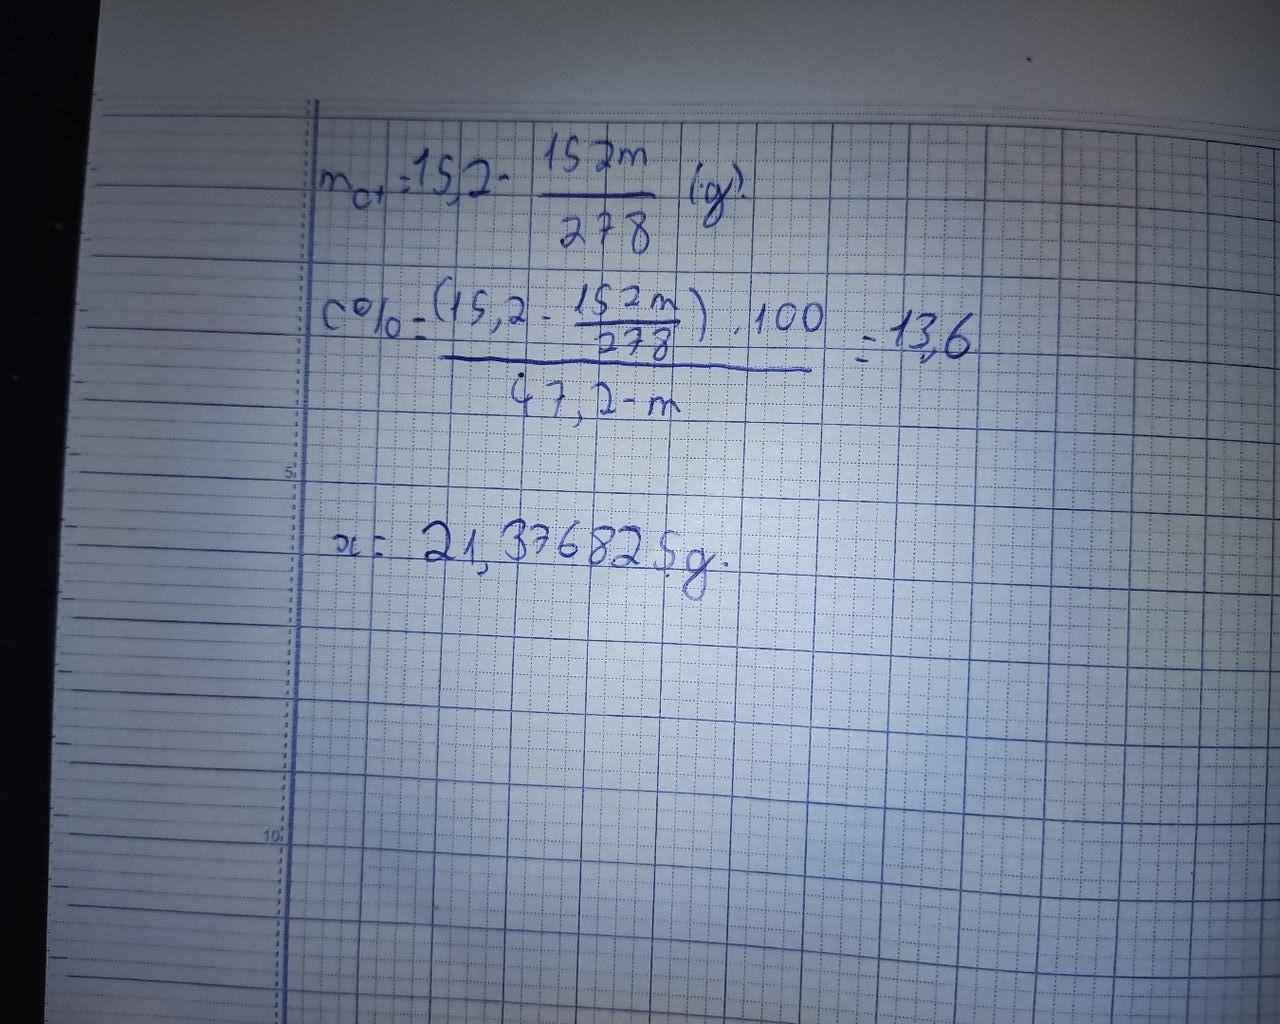 m_ct = 15,2 - 152m/278 (g).
C% = (15,2 - 152m/278) . 100 / 47,2 - m = 13,6
5
x = 21,376825g.
10